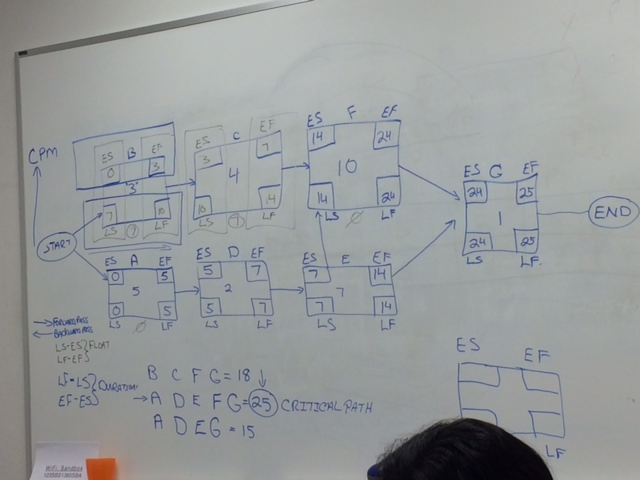 CPM
ES B EF
0 3
3
7 10
LS 7 LF
ES C EF
3 7
4
10 14
LS 7 LF
ES F EF
14 24
10
14 24
LS 0 LF
ES G EF
24 25
1
24 25
LS LF
END
START
ES A EF
0 5
5
0 5
LS 0 LF
ES D EF
5 7
2
5 7
LS LF
ES E EF
7 14
7
7 14
LS LF
FORWARD PASS
BACKWARD PASS
LS-ES } FLOAT
LF-EF
LF-LS } DURATION
EF-ES
B C F G = 18
A D E F G = 25 CRITICAL PATH
A D E G = 15
ES EF
LF
WiFi Sandbox